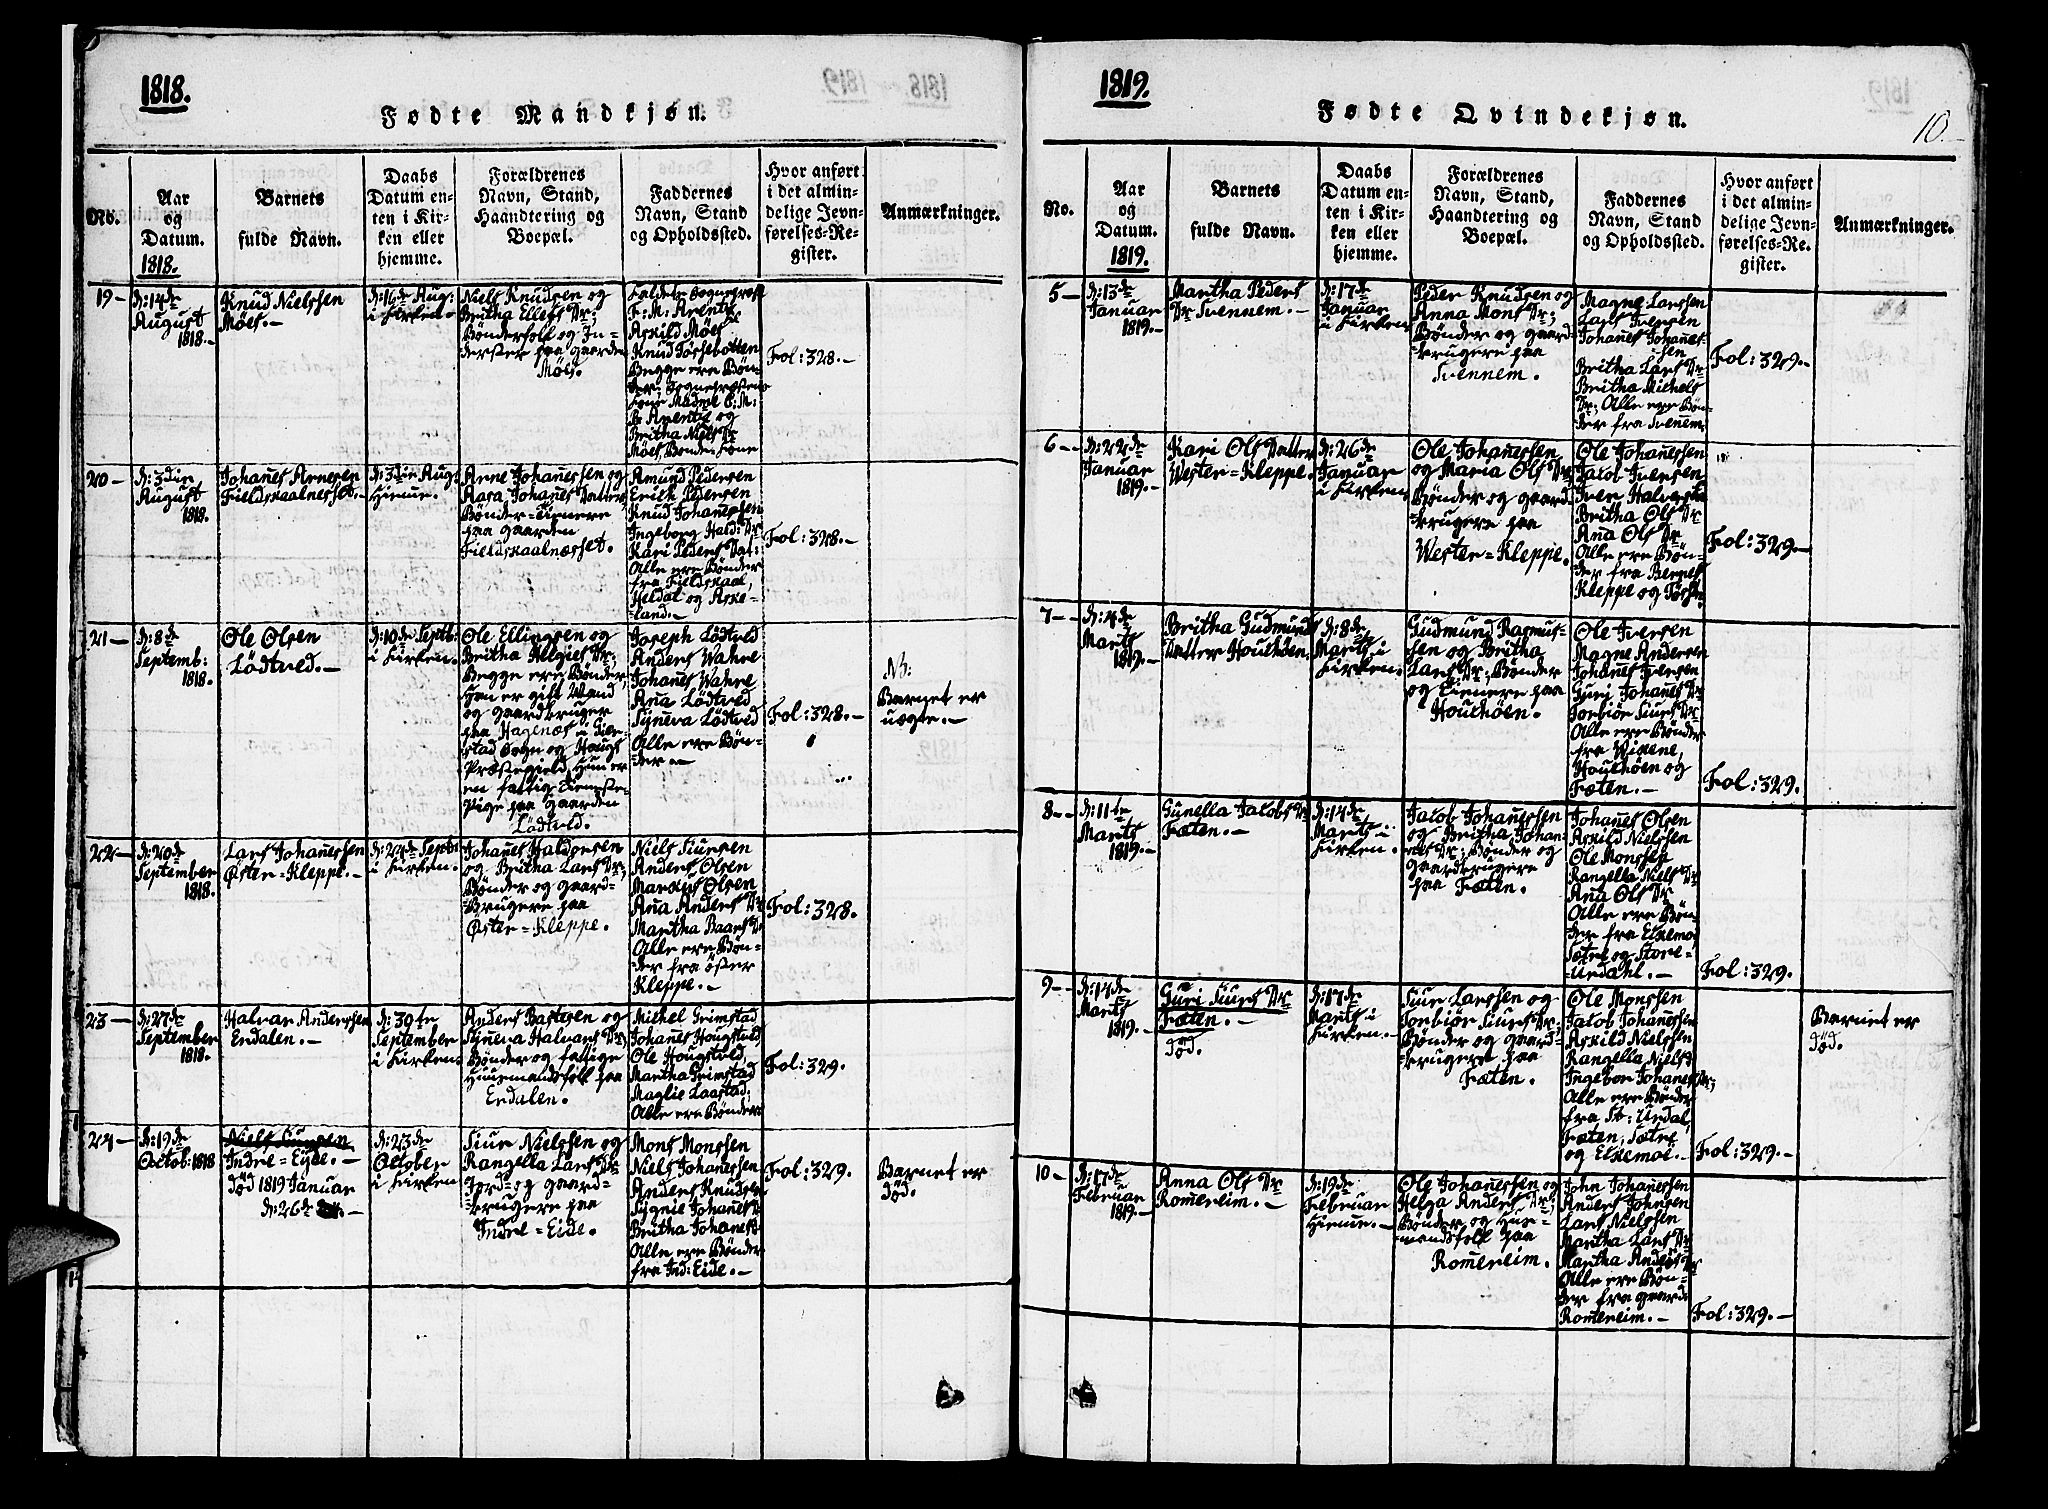 1818.
Fødte Mandkjøn.
No.
Aar
og
Datum.
1818.
Barnets
fulde Navn.
Daabs
Datum en-
ten i Kir-
ken eller
hjemme.
Forældrenes
Navn, Stand,
Haandtering og
Boepæl.
Faddernes
Navn, Stand
og Opholdssted.
Hvor anført
i det almin-
delige Jevn-
førelses-Re-
gister.
Anmærkninger.
19 -
d: 14de
August
1818. -
Knud Nielssen
Möes. -
d: 16de Aug:
i Kirken -
Niels Knudsen og
Britha Ellefs Dr:
Bönderfolk og In-
derster paa gaarden
Möes.
F: M: Arentz
Askild Möes
Knud Törsebotten
Begge ere Bön-
der;
og
Britha Niels Dr
Möes, Bonde Kone
Fol: 328. -
20 -
d: 3die
August
1818.
Johanes Arnesen
Fieldskaalnesset. -
d: 3die Aug:
Hieme. -
Arne Johanessen og
Aasa Johanes Datter
Bönder-Tienere
paa gaarden
Fieldskaalnæsset.
Amund Pedersen
Erich Pedersen
Knud Johanessen
Ingeborg Hald: Dr
Kari Peders Dat:
Alle ere Bönder
fra Fieldskaal,
Heldal og Aske-
land. -
Fol: 328. -
21 -
d: 8de
Septemb:
1818.
Ole Olsen
Lödtved. -
d: 10de Septb:
i Kirken. -
Ole Ellingsen og
Britha Helgies Dr;
Begge ere Bönder,
Han er gift Mand
og gaardbruger
paa Hagenæs i Gier-
stad Sogn og Hougs
Præstegield, Hun er
en fattig Tieneste-
Pige paa gaarden
Lödtved.
Joseph Lödtved
Anders Wahre
Johanes Wahre
Ana Lödtved
Syneva Lödtved
Alle ere Bön-
der -
Fol: 328. -
NB:
Barnet er
uægte. -
22 -
d: 20de
September
1818.
Lars Johanessen
Øster-Kleppe. -
d: 24de Septb:
i Kirken. -
Johanes Haldorsen
og Britha Lars Dr;
Bönder og gaard-
Brugere paa
Øster-Kleppe.
Niels Siursen
Anders Olsen
Marcus Olsen
Ana Anders Dr
Martha Baars Dr
Alle ere Bön-
der fra öster
Kleppe. -
Fol: 328.
23 -
d: 27de
September
1818.
Halvar Anderssen
Endalen. -
d: 30te
September
i Kirken.
Anders Bastesen og
Syneva Halvars Dr;
Bönder og fattige
Huusmandsfolk paa
Endalen.
Michel Grimstad
Johanes Hougstved
Ole Hougstved,
Martha Grimstad
Maglie Laastad:
Alle ere Bönder
Fol: 329.
24 -
d: 19de
Octob: 1818
Niels Siursen
Indre-Eyde. -
död 1819 Januar
d: 26de
d: 23de
October
i Kirken
Siur Nielssen og
Rangella Lars Dr
Jord- og gaard-
brugere paa
Indre-Eide.
Mons Monssen
Niels Johanessen
Anders Knudsen
Sygnie Johanes Dr
Britha Johanes Dr
Alle ere Bönder
fra Ind: Eide. -
Fol: 329.
Barnet er
död.
1819.
Fødte Qvindekjøn.
10.
No.
Aar
og
Datum.
1819.
Barnets
fulde Navn.
Daabs
Datum en-
ten i Kir-
ken eller
hjemme.
Forældrenes
Navn, Stand,
Haandtering og
Boepæl.
Faddernes
Navn, Stand
og Opholdssted.
Hvor anført
i det almin-
delige Jevn-
førelses-Re-
gister.
Anmærkninger.
5 -
d: 13de
Januar
1819. -
Martha Peders
Dr Tvennem. -
d: 17de
Januar
i Kirken
Peder Knudsen og
Anna Mons Dr;
Bönder og gaard-
brugere paa
Tvennem.
Magne Larssen
Lars Iversen
Johanes Johanes-
sen
Britha Lars Dr
Britha Michels
Dr; Alle ere Bön-
der fra Tvenem
Fol: 329. -
6 -
d: 22de
Januar
1819. -
Kari Ols Datter
Wester-Kleppe.
d: 26de
Januar
i Kirken
Ole Johanessen
og Maria Ols Dr
Bönder og gaard-
brugere paa
Wester-Kleppe.
Ole Johanessen
Jacob Iversen
Britha Ols Dr
Ana Ols Dr
Alle ere Bön-
der fra
Kleppe og
Fol: 329. -
7 -
d: 4de
Marts
1819. -
Britha Gudmunds
Datter Houkhöen.
d: 8de
Marts i
Kirken.
Gudmund Rasmus-
sen og Britha
Lars Dr; Bönder
og Tienere paa
Houkhöen.
Ole Iversen
Magne Andersen
Johanes Iversen
Guri Johanes Dr
Torbiör Siurs Dr
Alle ere Bönder
fra Wikene,
Houkhöen og
Fæten. -
Fol: 329.
8 -
d: 11te
Marts
1819. -
Gunella Jacobs Dr
Fæten. -
d: 14de
Marts i
Kirken.
Jacob Johanessen
og Britha Johan-
nes Dr; Bönder og
gaardbrugere
paa Fæten.
Johanes Olsen
Askild Nielssen
Ole Monssen
Rangella Niels Dr
Ana Ols Dr
Alle ere Bön-
der fra Elsemoi
Sætre og Store-
Urdahl. -
Fol: 329.
9 -
d: 14de
Marts
1819.
Guri Siurs Dr
Fæten. -
död.
d: 17de
Marts i
Kirken.
Siur Larssen og
Torbiör Siurs Dr;
Bönder og gaard-
brugere paa
Fæten.
Ole Monssen
Jacob Johanessen
Askild Nielssen
Rangella Niels Dr
Ingebor Johanes Dr;
Alle ere Bönder
fra St: Urdal,
Fæten, Sætre
og Elsemoi. -
Fol: 329. -
Barnet er
död.
10 -
d: 17de
Februar
1819. -
Anna Ols Dr
Romereim. -
d: 19de
Februar
Hieme. -
Ole Johanessen og
Helga Anders Dr;
Bönder og Huus-
mandsfolk paa
Romereim.
John Johanessen
Anders Johnsen
Lars Nielssen
Martha Lars Dr
Martha Anders Dr
Alle ere Bön-
der fra gaard
Romereim. -
Fol: 329. -